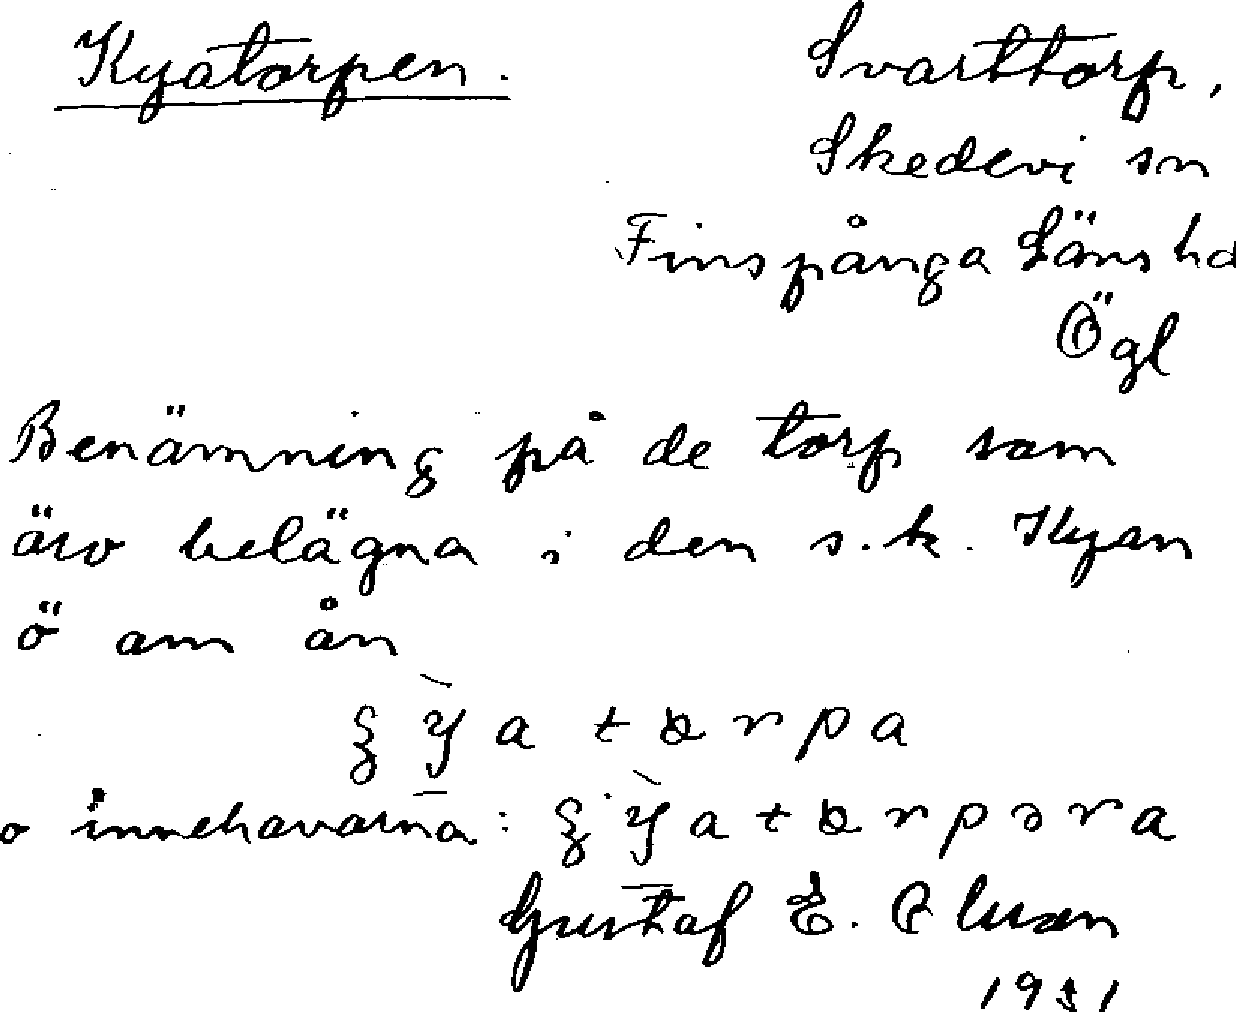 Kyatorpen.
Svarttorp,
Skedevi sn
Finspånga Läns hd
Ögl
Benämning på de torp som
äro belägna i den s.k. Kyan
ö om ån
o innehavarna:
Gustaf E.